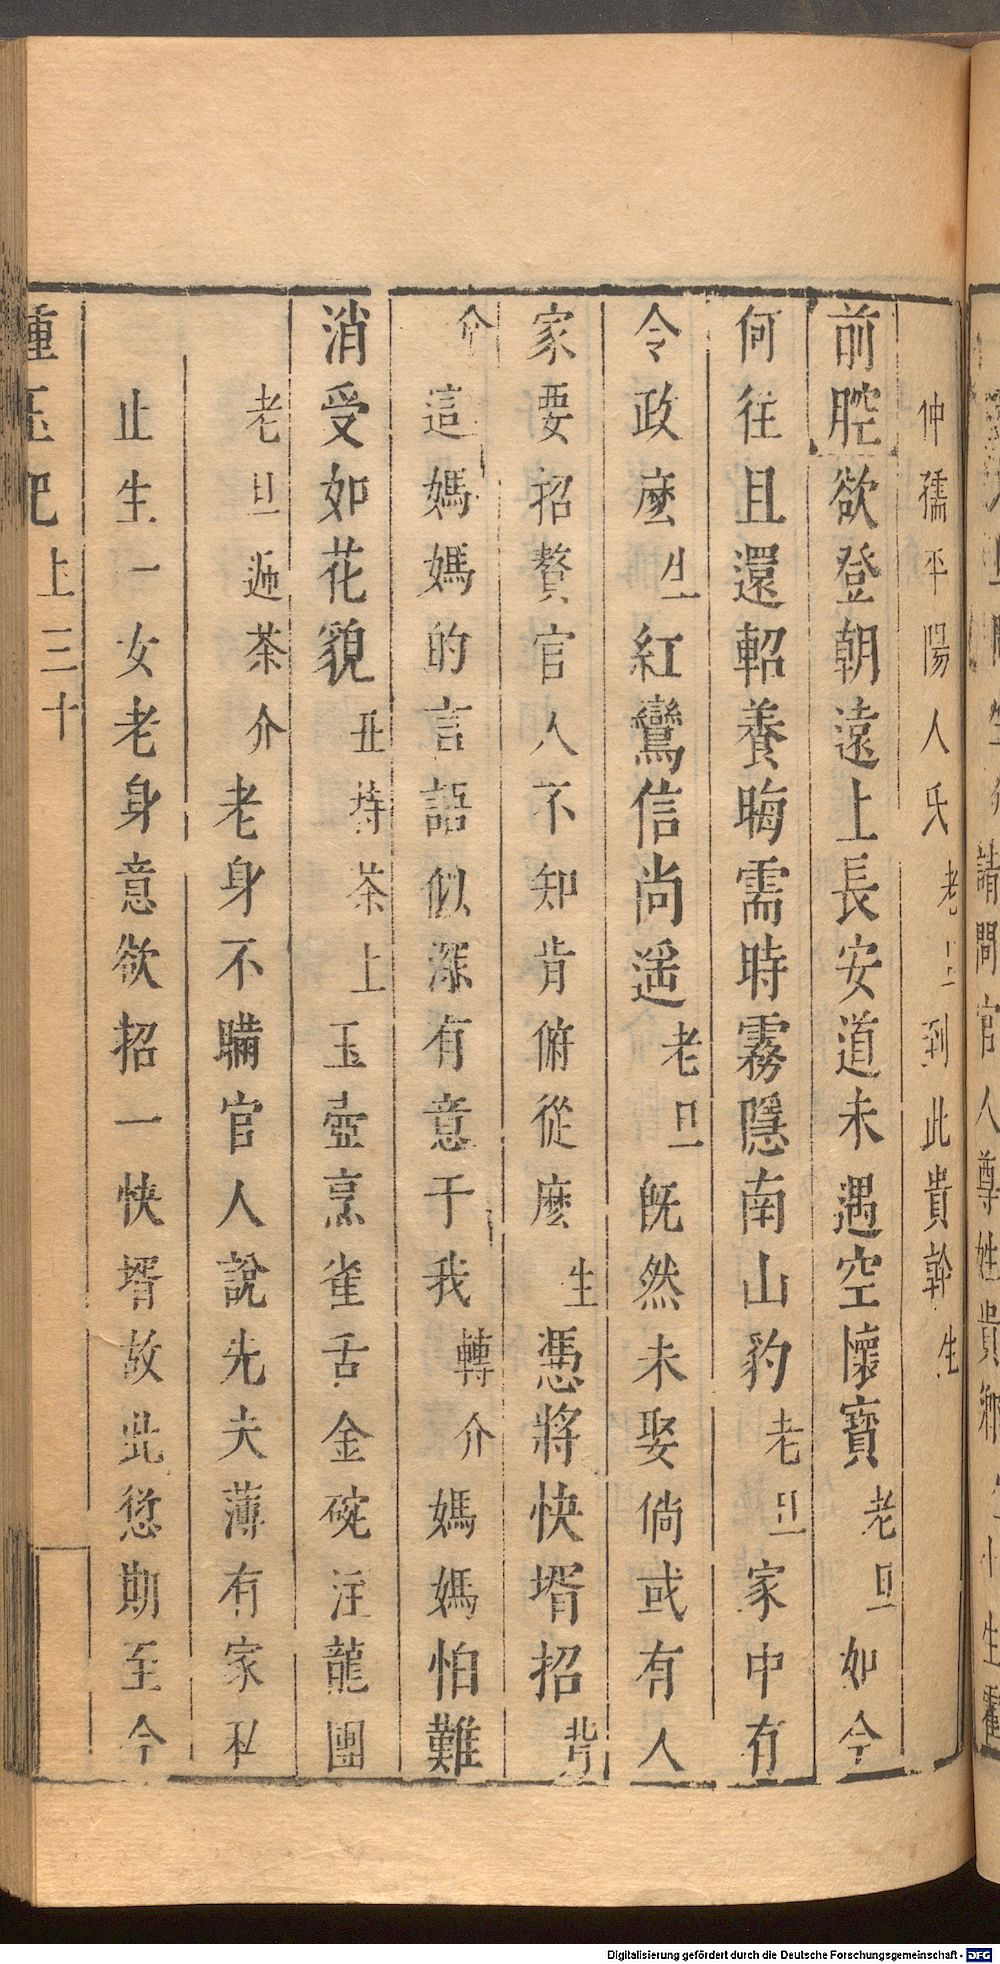 請問官人尊姓貴
仲孺平陽人氏老旦到此貴幹生
前腔欲登朝遠上長安道未遇空懷寶老旦如今
何往且還軺養晦需時霧隱南山豹老旦家中有
令政麼生紅鸞信尚遥老旦旣然未娶倘或有人
家要招贅官人不知肯俯從麼生慿將快壻招背
介這媽媽的言語似深有意于我轉介媽媽怕難
消受如花貌丑持茶上玉壺烹雀舌金碗注龍團
老旦遞茶介老身不瞞官人說先夫薄有家私
止生一女老身意欲招一快壻故此愆期至今
種玉記上三十
Digitalisierung gefördert durch die Deutsche Forschungsgemeinschaft - DFG